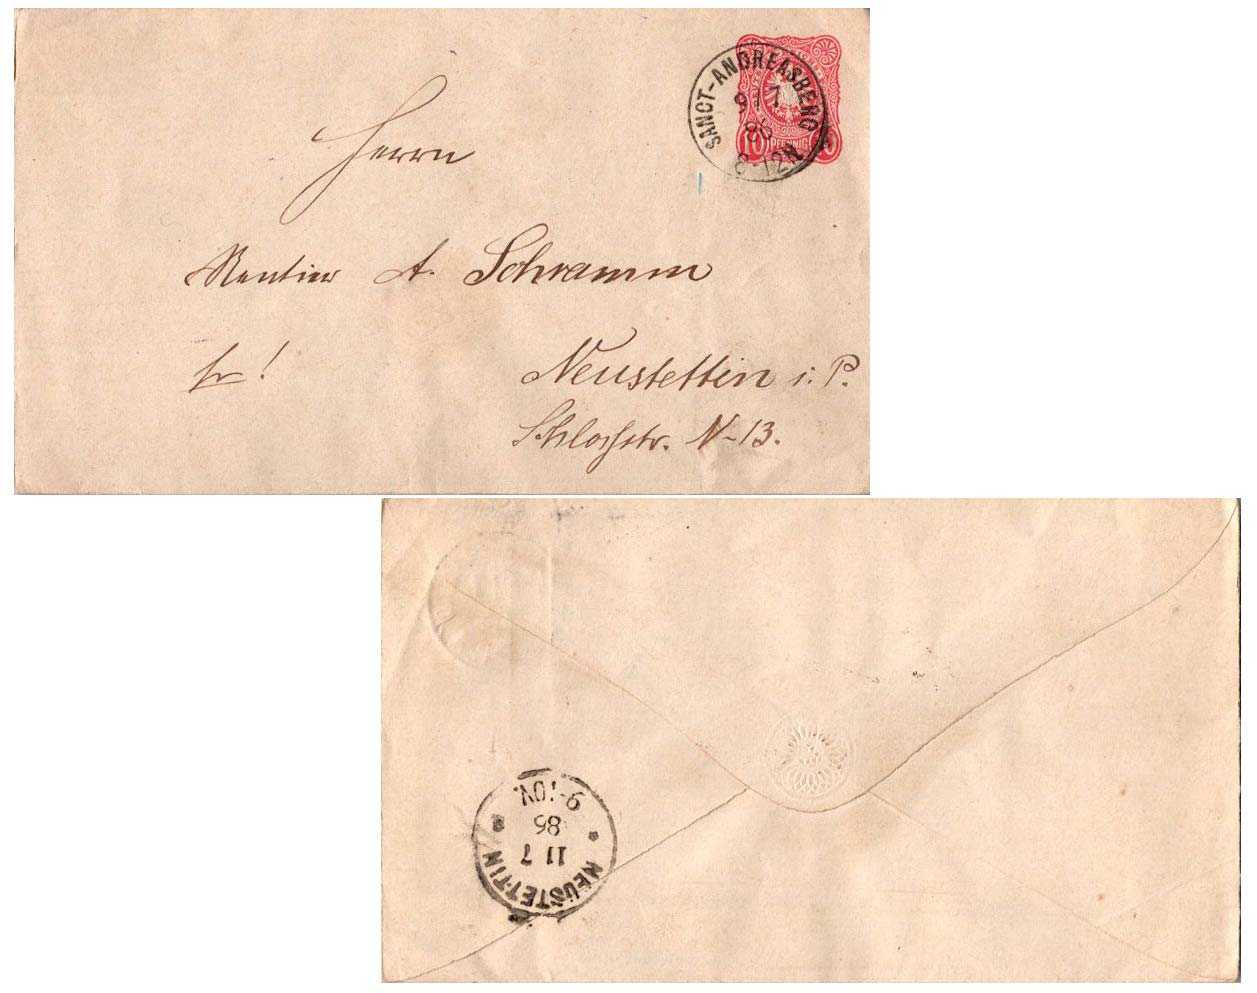 SANCT-ANDREASBERG
9/7
86
8-12N
10 PFENNIG 10
Herrn
Rentier A. Schramm
fr!
Neustettin i. P.
Schloßstr. N-13.
NEUSTETTIN
11 7
86
9-10V.